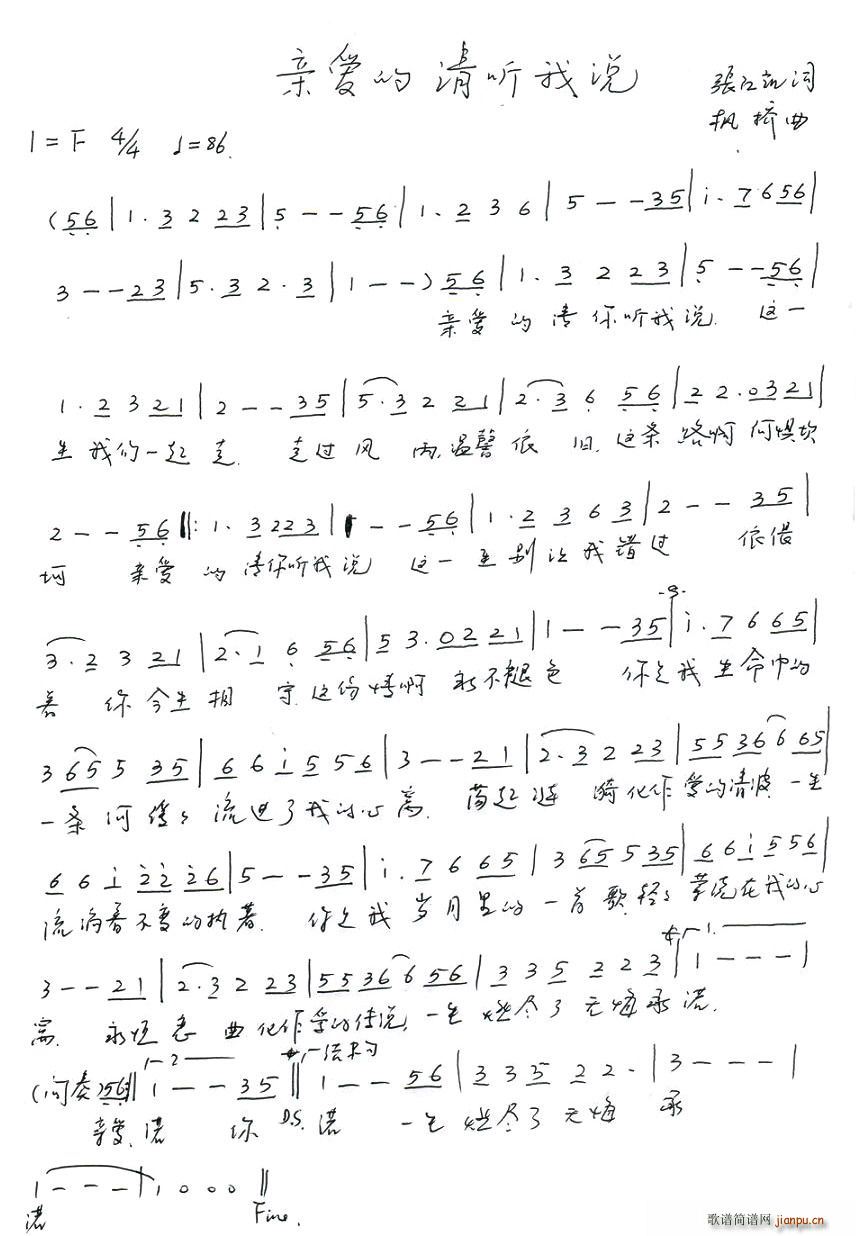 亲爱的请听我说
張 词
枫桥曲
1=F 4/4 ♩=86
(56|1·3 2 23|5--56|1·2 3 6|5--35|i·7 6 56|
3--23|5·3 2·3|1--)56|1·3 2 23|5--56|
亲爱的请你听我说 这一
1·2 3 21|2--35|5·3 2 21|2·3 6 56|2 2·0 3 21|
生我们一起走 走过风雨,温馨依旧,这条路啊何惧坎
2--56‖:1·3 2 2 3|1--56|1·2 3 6 3|2--35|
坷 亲爱的请你听我说 这一生别让我错过 依偎
3·2 3 21|2·1 6 56|5 3·0 2 21|1--35|i·7 6 65|
着你今生相守,这份情啊永不褪色 你是我生命中的
3 65 5 35|6 6 i 5 5 6|3--21|2·3 2 23|5 5 3 6 6 65|
一条河 流进了我的心窝 荡起涟漪化作爱的清波 一生
6 6 i 2 2 2 6|5--35|i·7 6 65|3 65 5 35|6 6 i 5 5 6|
流淌着不变的执着 你是我岁月里的一首歌,轻轻萦绕在我的心
3--21|2·3 2 23|5 5 3 6 6 56|3 3 5 2 2 3|1---|
窝 永恒 曲化作爱的传说,一生 尽了无悔承诺
(间奏)56‖1--35‖1--56|3 3 5 2 2·|3---|
亲爱 诺 你 D.S. 诺 一生 尽了无悔 承
1---|1 0 0 0‖
诺 Fine.
歌谱简谱网 jianpu.cn